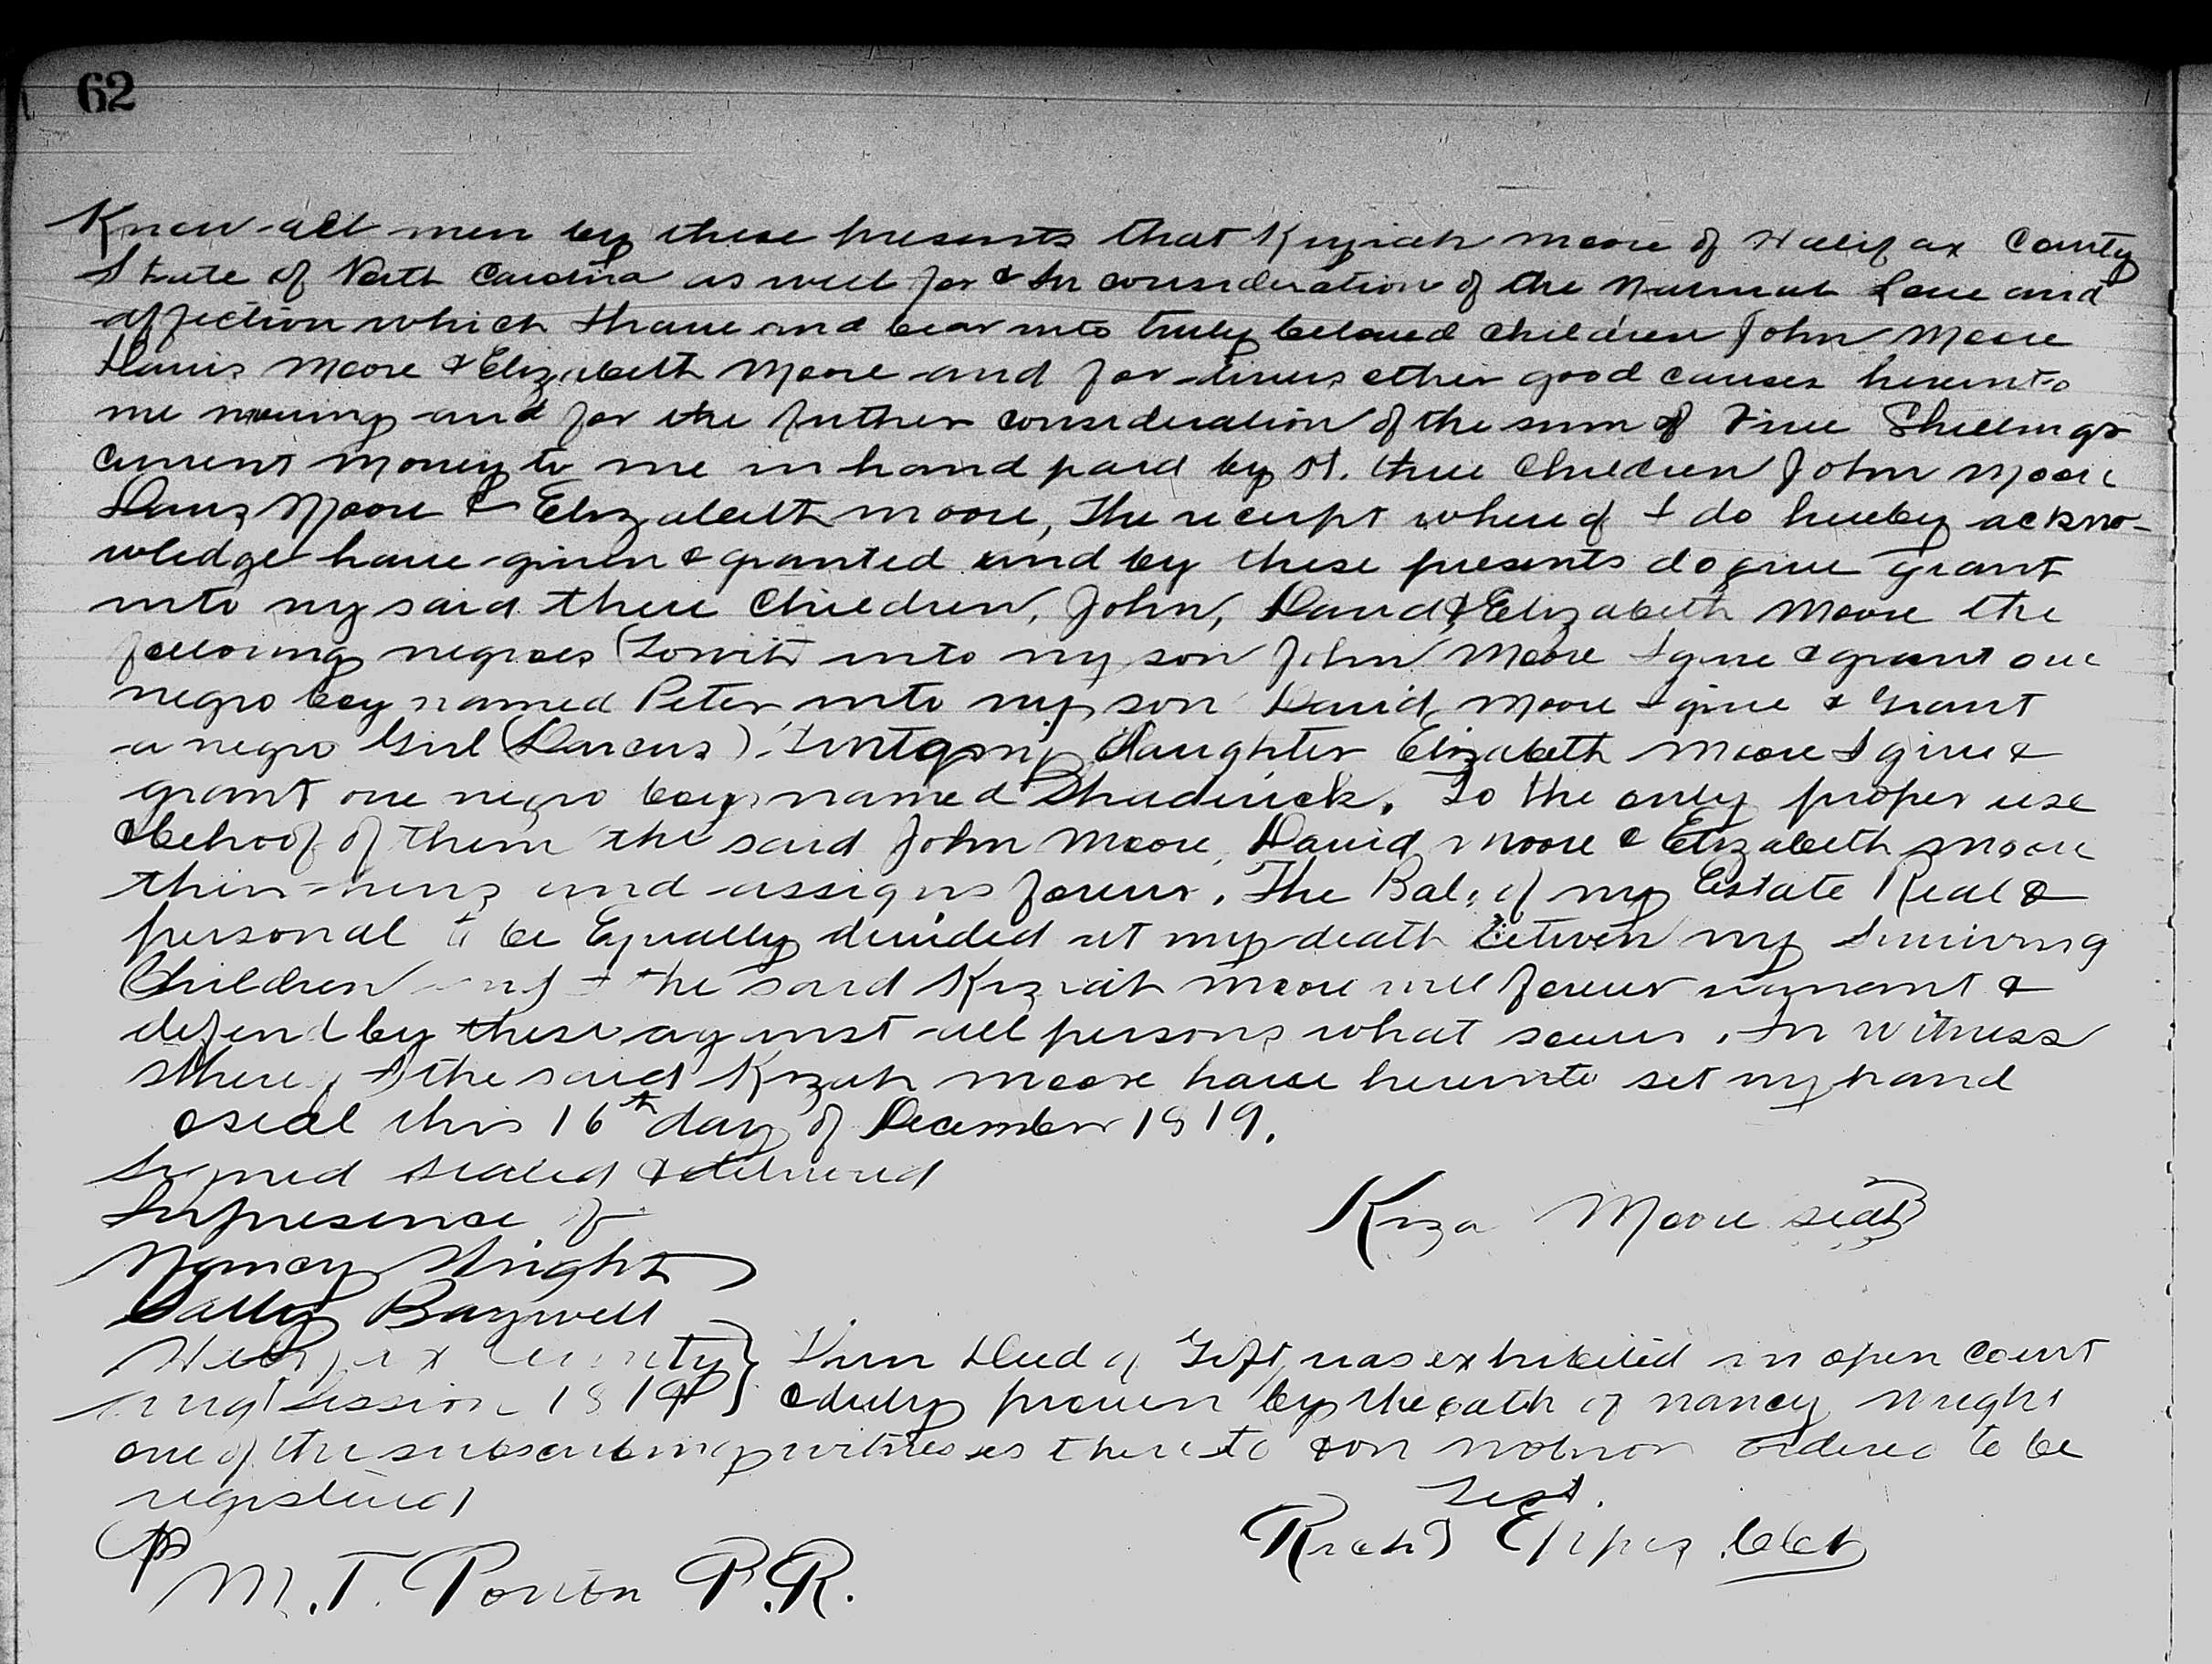 62
Know all men by these presents that Keziah Moore of Halifax County
State of North Carolina as well for & In consideration of the Natural Love and
affection which I have and bear unto truly beloved children John Moore
Davis Moore & Elizabeth Moore and for divers other good causes hereunto
me moving and for the further consideration of the sum of Five Shillings
current money to me in hand paid by sd. three Children John Moore
Davis Moore & Elizabeth Moore, The receipt whereof I do hereby ackno-
wledge have given & granted and by these presents do give grant
unto my said three Children, John, David, & Elizabeth Moore the
following negroes (Towit) unto my son John Moore I give & grant one
negro boy named Peter unto my son David Moore I give & Grant
a negro Girl (Darcus). Unto my Daughter Elizabeth Moore I give &
grant one negro boy named Shadrick. To the only proper use
& behoof of them the said John Moore, David Moore & Elizabeth Moore
their heirs and assigns forever. The Bal. of my Estate Real &
personal to be Equally divided at my death between my Surviving
Children I the said Keziah Moore will forever warrant &
defend by these against all persons what soever. In witness
I the said Kizah Moore have hereunto set my hand
& seal this 16th day of December 1819.
Signed Sealed & delivered
In presence of
Kiza Moore seal
Nancy Wright
Sally Bagwell
Halifax County } Deed of Gift, was exhibited in open court
Augt Session 1819 } & duly proven by the oath of Nancy Wright
one of the subscribing witnesses thereto & on motion ordered to be
registered
Test.
Richd Eppes Clk
M. T. Ponton P.R.